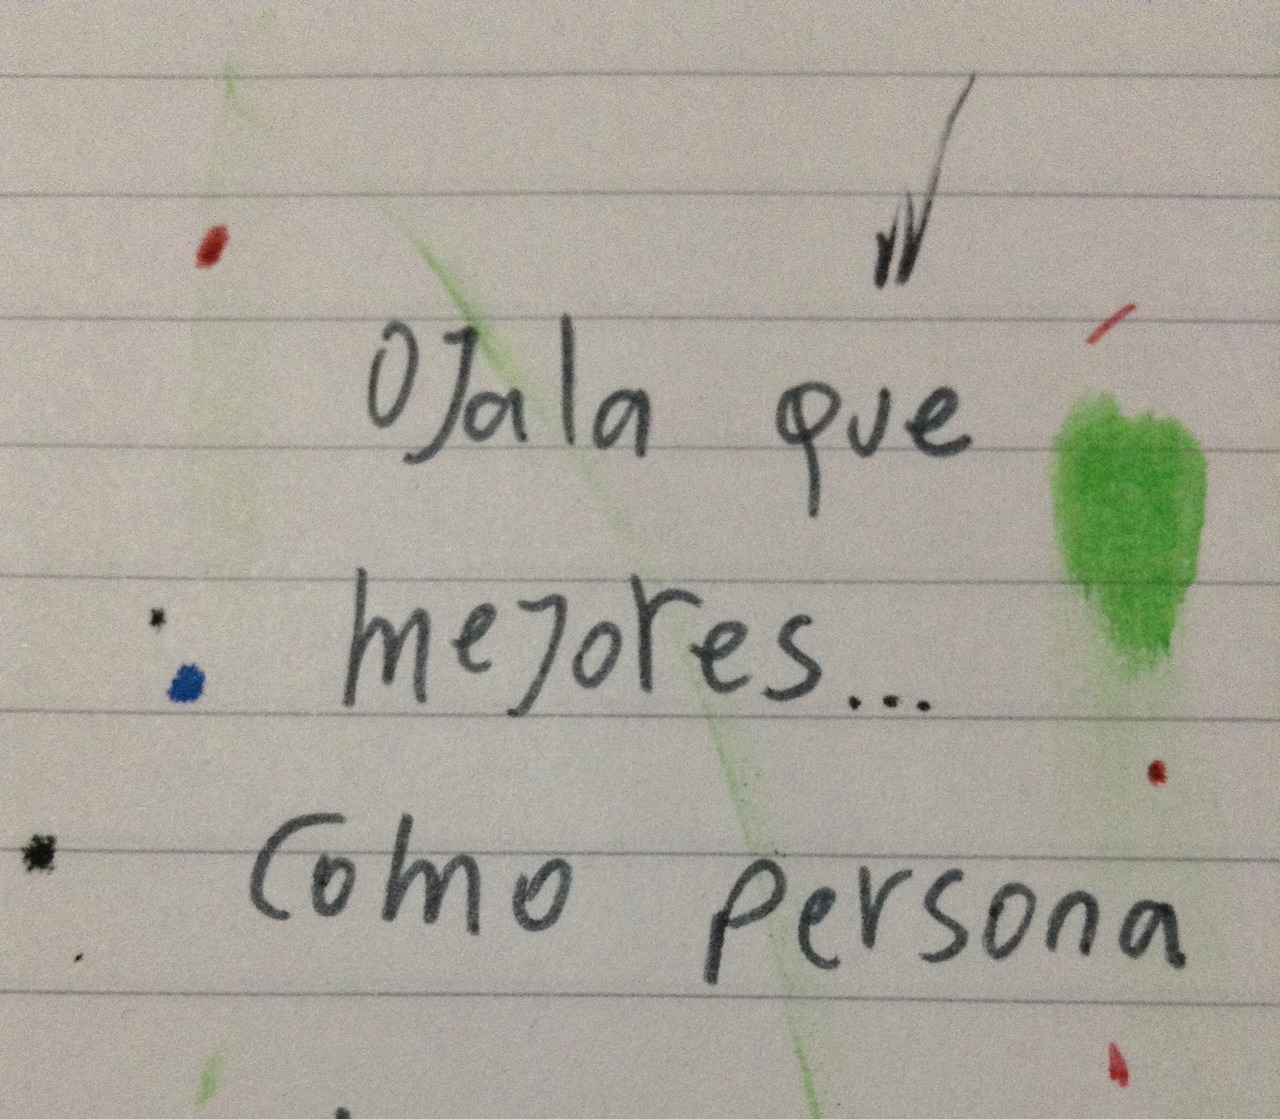 OJala que
meJores...
Como persona